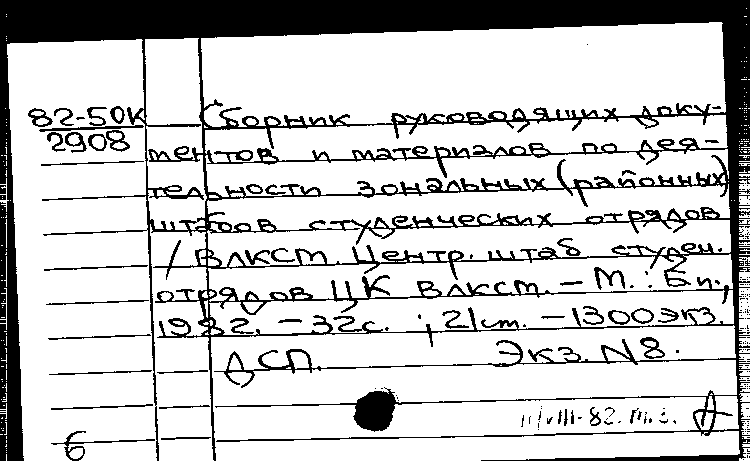 82-50К
2908
Сборник руководящих доку-
ментов и материалов по дея-
тельности зональных (районных)
штабов студенческих отрядов
/ ВЛКСМ. Центр. штаб студен.
отрядов ЦК ВЛКСМ. – М.: Б.и.,
1982. – 32с. ; 21см. – 1300экз.
ДСП. Экз. N8.
11/VIII-82. т.з.
6